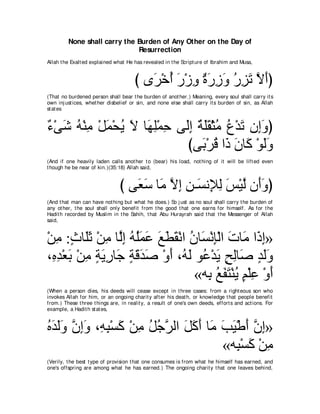 None shall carry the Burden of Any Other on the Day of the
Resurrection
Allah the Exalted explained what He has revealed in the Scripture of Ibrahim and Musa,
﴿ أَلاَّ تَزِرُ وَزِرَةٌ وِزْرَ أُخْرَى ﴾
(That no burdened person shall bear the burden of another.) Meaning, every soul shall carry its
own injustices, whether disbelief or sin, and none else shall carry its burden of sin, as Allah
states
﴿وَإِن تَدْعُ مُثْقَلَةٌ إِلَى حِمْلِهَا لاَ يُحْمَلْ مِنْهُ شَىْءٌ
وَلَوْ كَانَ ذَا قُرْبَى﴾
(And if one heavily laden calls another to (bear) his load, nothing of it will be lifted even
though he be near of kin.)(35:18) Allah said,
﴿وَأَن لَّيْسَ لِلإِنسَـنِ إِلاَّ مَا سَعَى ﴾
(And that man can have nothing but what he does.) So just as no soul shall carry the burden of
any other, the soul only benefit from the good that one earns for himself. As for the
Hadith recorded by Muslim in the Sahih, that Abu Hurayrah said that the Messenger of Allah
said,
«إِذَا مَاتَ الْإِنْسَانُ انْقَطَعَ عَمَلُهُ إِلَّا مِنْ ثَلَاثٍ: مِنْ
وَلَدٍ صَالِحٍ يَدْعُو لَهُ، أَوْ صَدَقَةٍ جَارِيَةٍ مِنْ بَعْدِهِ،
أَوْ عِلْمٍ يُنْتَفَعُ بِه»
(When a person dies, his deeds will cease except in three cases: from a righteous son who
invokes Allah for him, or an ongoing charity after his death, or knowledge that people benefit
from.) These three things are, in reality, a result of one's own deeds, efforts and actions. For
example, a Hadith states,
«إِنَّ أَطْيَبَ مَا أَكَلَ الرَّجُلُ مِنْ كَسْبِهِ، وَإِنَّ وَلَدَهُ
مِنْ كَسْبِه»
(Verily, the best type of provision that one consumes is from what he himself has earned, and
one's offspring are among what he has earned.) The ongoing charity that one leaves behind,